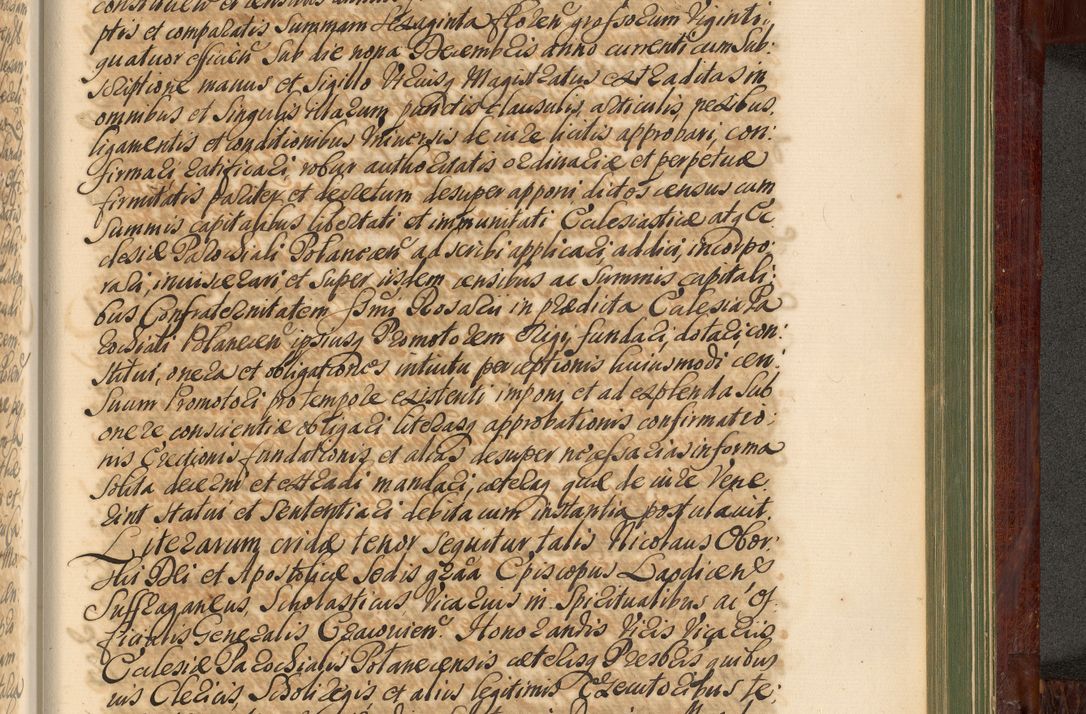 ptis et comparatis Summam Sexaginta florenor̃ grossorum Viginti
quatuor efficien̄ Sub die nona Decembris anno currenti cum Sub:
scriptione manus et Sigillo Vtriusq Magistratus extraditas in
omnibus et Singulis illarum punctis clausulis, articulis, nexibus,
ligamentis et conditionibus Universis de iure licitis approbari, con:
firmari ratificari, robur authoritatis ordinariæ et perpetuæ
firmitatis pariter et decretum desuper apponi dictos census cum
Summis capitalibus libertati et immunitati Ecclesiasticæ atq Ec
clesiæ Parochiali Polanecen̄ adscribi applicari, addici, incorpo:
rari, inviscerari et super iisdem censibus ac Summis capitali:
bus Confraternitatem Ssmi Rosarii in prædicta Ecclesia Pa
rochiali Polanecen̄ ipsiusq Promotorem erigi, fundari, dotari, con:
stitui, onera et obligationes intuitu perceptionis huiusmodi cen:
Suum Promotori pro tempore existenti imponi et ad explenda Sub
onere conscientiæ obligari literasq approbationis confirmatio:
nis Erectionis fundationis et alias desuper necessarias in forma
Solita decerni et extradi mandari, cæteraq quæ de iure Vene
rint Statui et Sententiari debita cum instantia postulavit.
Literarum cridæ tenor sequitur talis Nicolaus Obor:
ski Dei et Apostolicæ Sedis gr̃aa Episcopus Laodicen̄s
Suffraganeus, Scholasticus Vicarius in Spiritualibus ac Of
ficialis Generalis Cracovien̄. Honorandis Viris Vicariis
Ecclesiæ Parochialis Polanecensis cæterisq Presbris quibus
vis Clericis, Scholiregis et aliis legitimis Executoribus te: